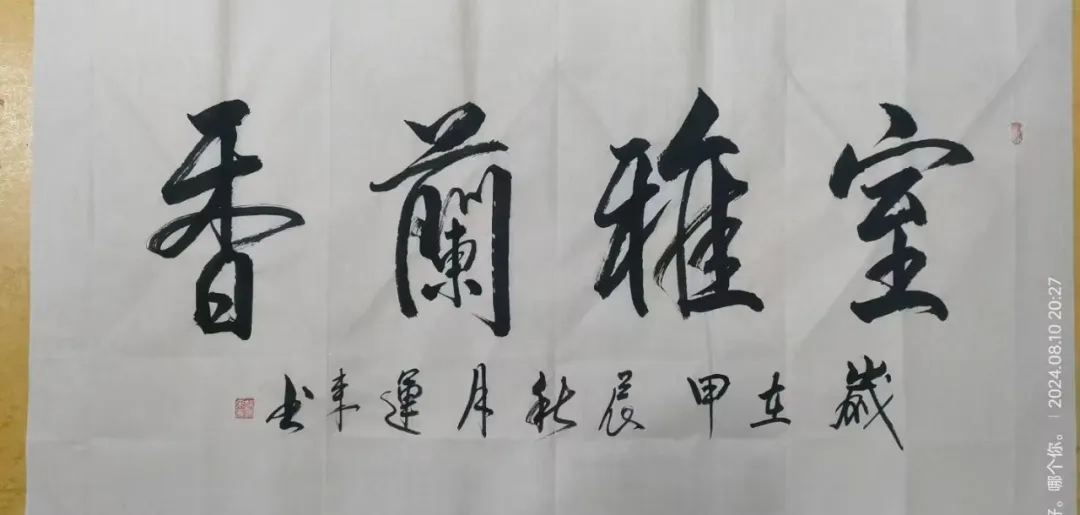 室雅蘭香
歲在甲辰秋月運來书
好。哪个你。 | 2024.08.10 20:27